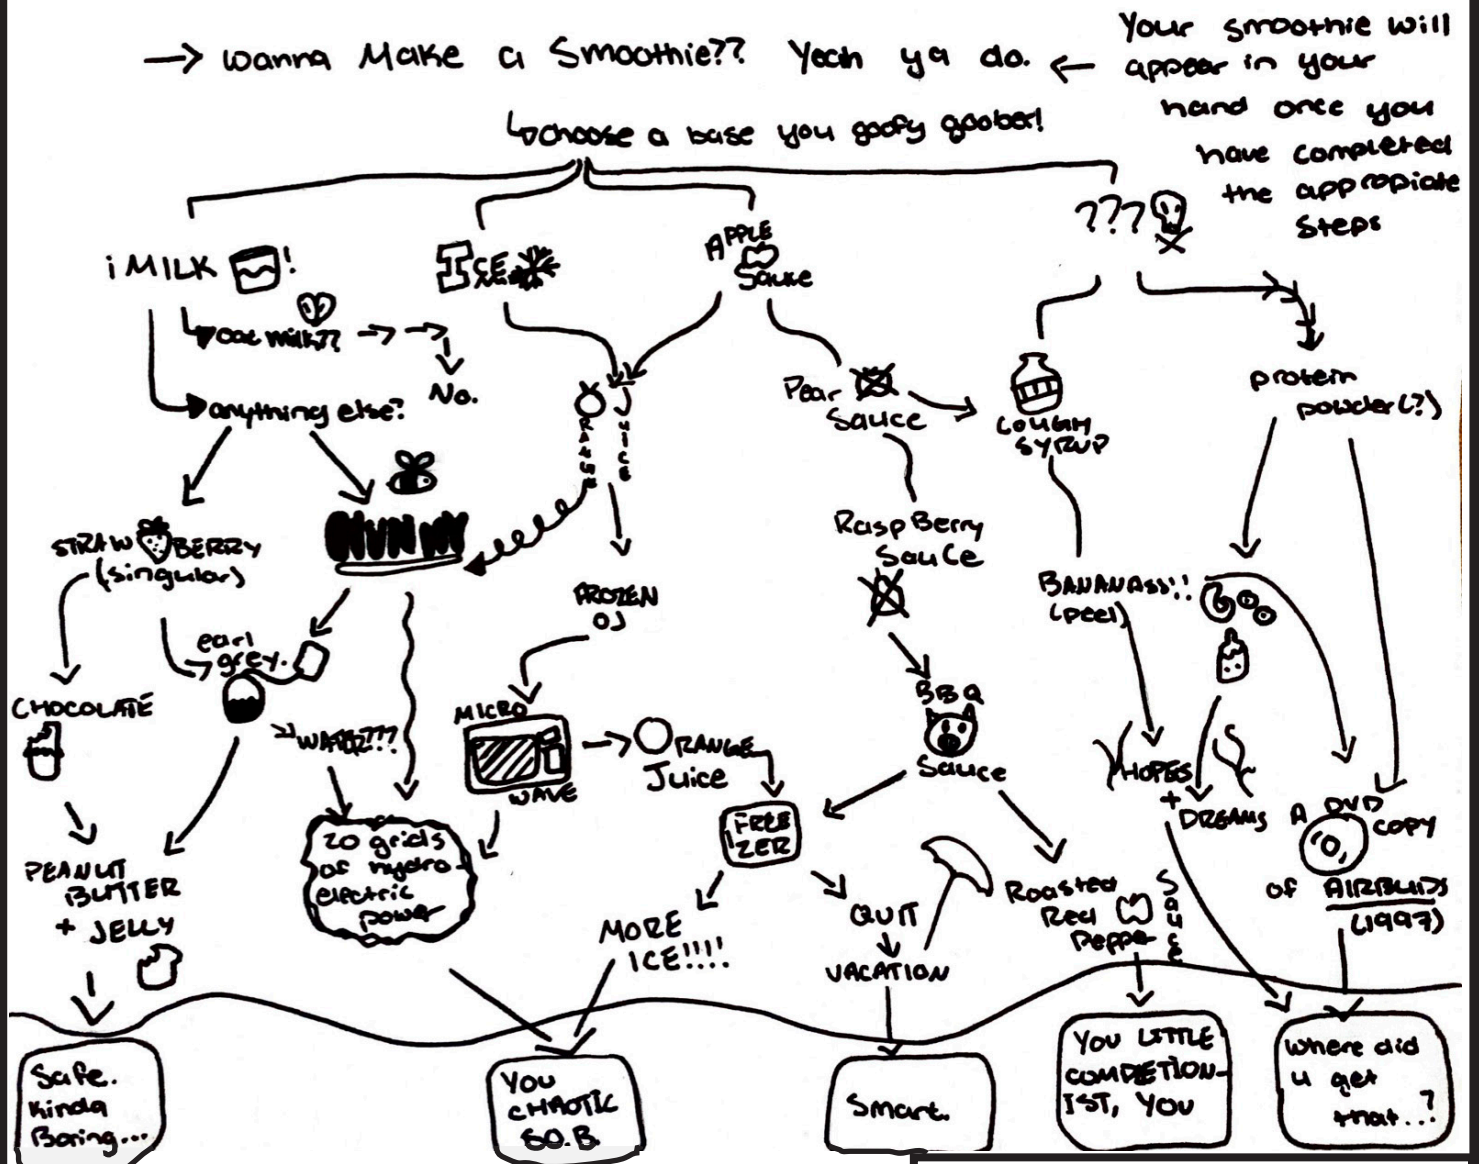 → Wanna Make a Smoothie?? Yeah ya do. ←
Your smoothie will
appear in your
hand once you
have completed
the appropiate
steps
↳ choose a base you goofy goober!
¡MILK!
ICE
APPLE
Sauce
???
oat milk??
No.
anything else?
ORANGE
JUICE
Pear
Sauce
COUGH
SYRUP
protein
powder(?)
STRAWBERRY
(singular)
HUNNY
FROZEN
OJ
RaspBerry
Sauce
BANANAS!!
(peel)
earl
grey.
CHOCOLATE
WATER???
MICRO
WAVE
ORANGE
Juice
BBQ
Sauce
HOPES
+
DREAMS
A DVD
COPY
of AIRBUDS
(1997)
20 grids
of hydro-
electric
power
FREE
ZER
PEANUT
BUTTER
+ JELLY
MORE
ICE!!!!
QUIT
VACATION
Roasted
Red
Pepper
Sauce
Safe.
Kinda
Boring...
YOU
CHAOTIC
S.O.B.
Smart.
YOU LITTLE
COMPLETION-
IST, YOU
Where did
u get
that...?